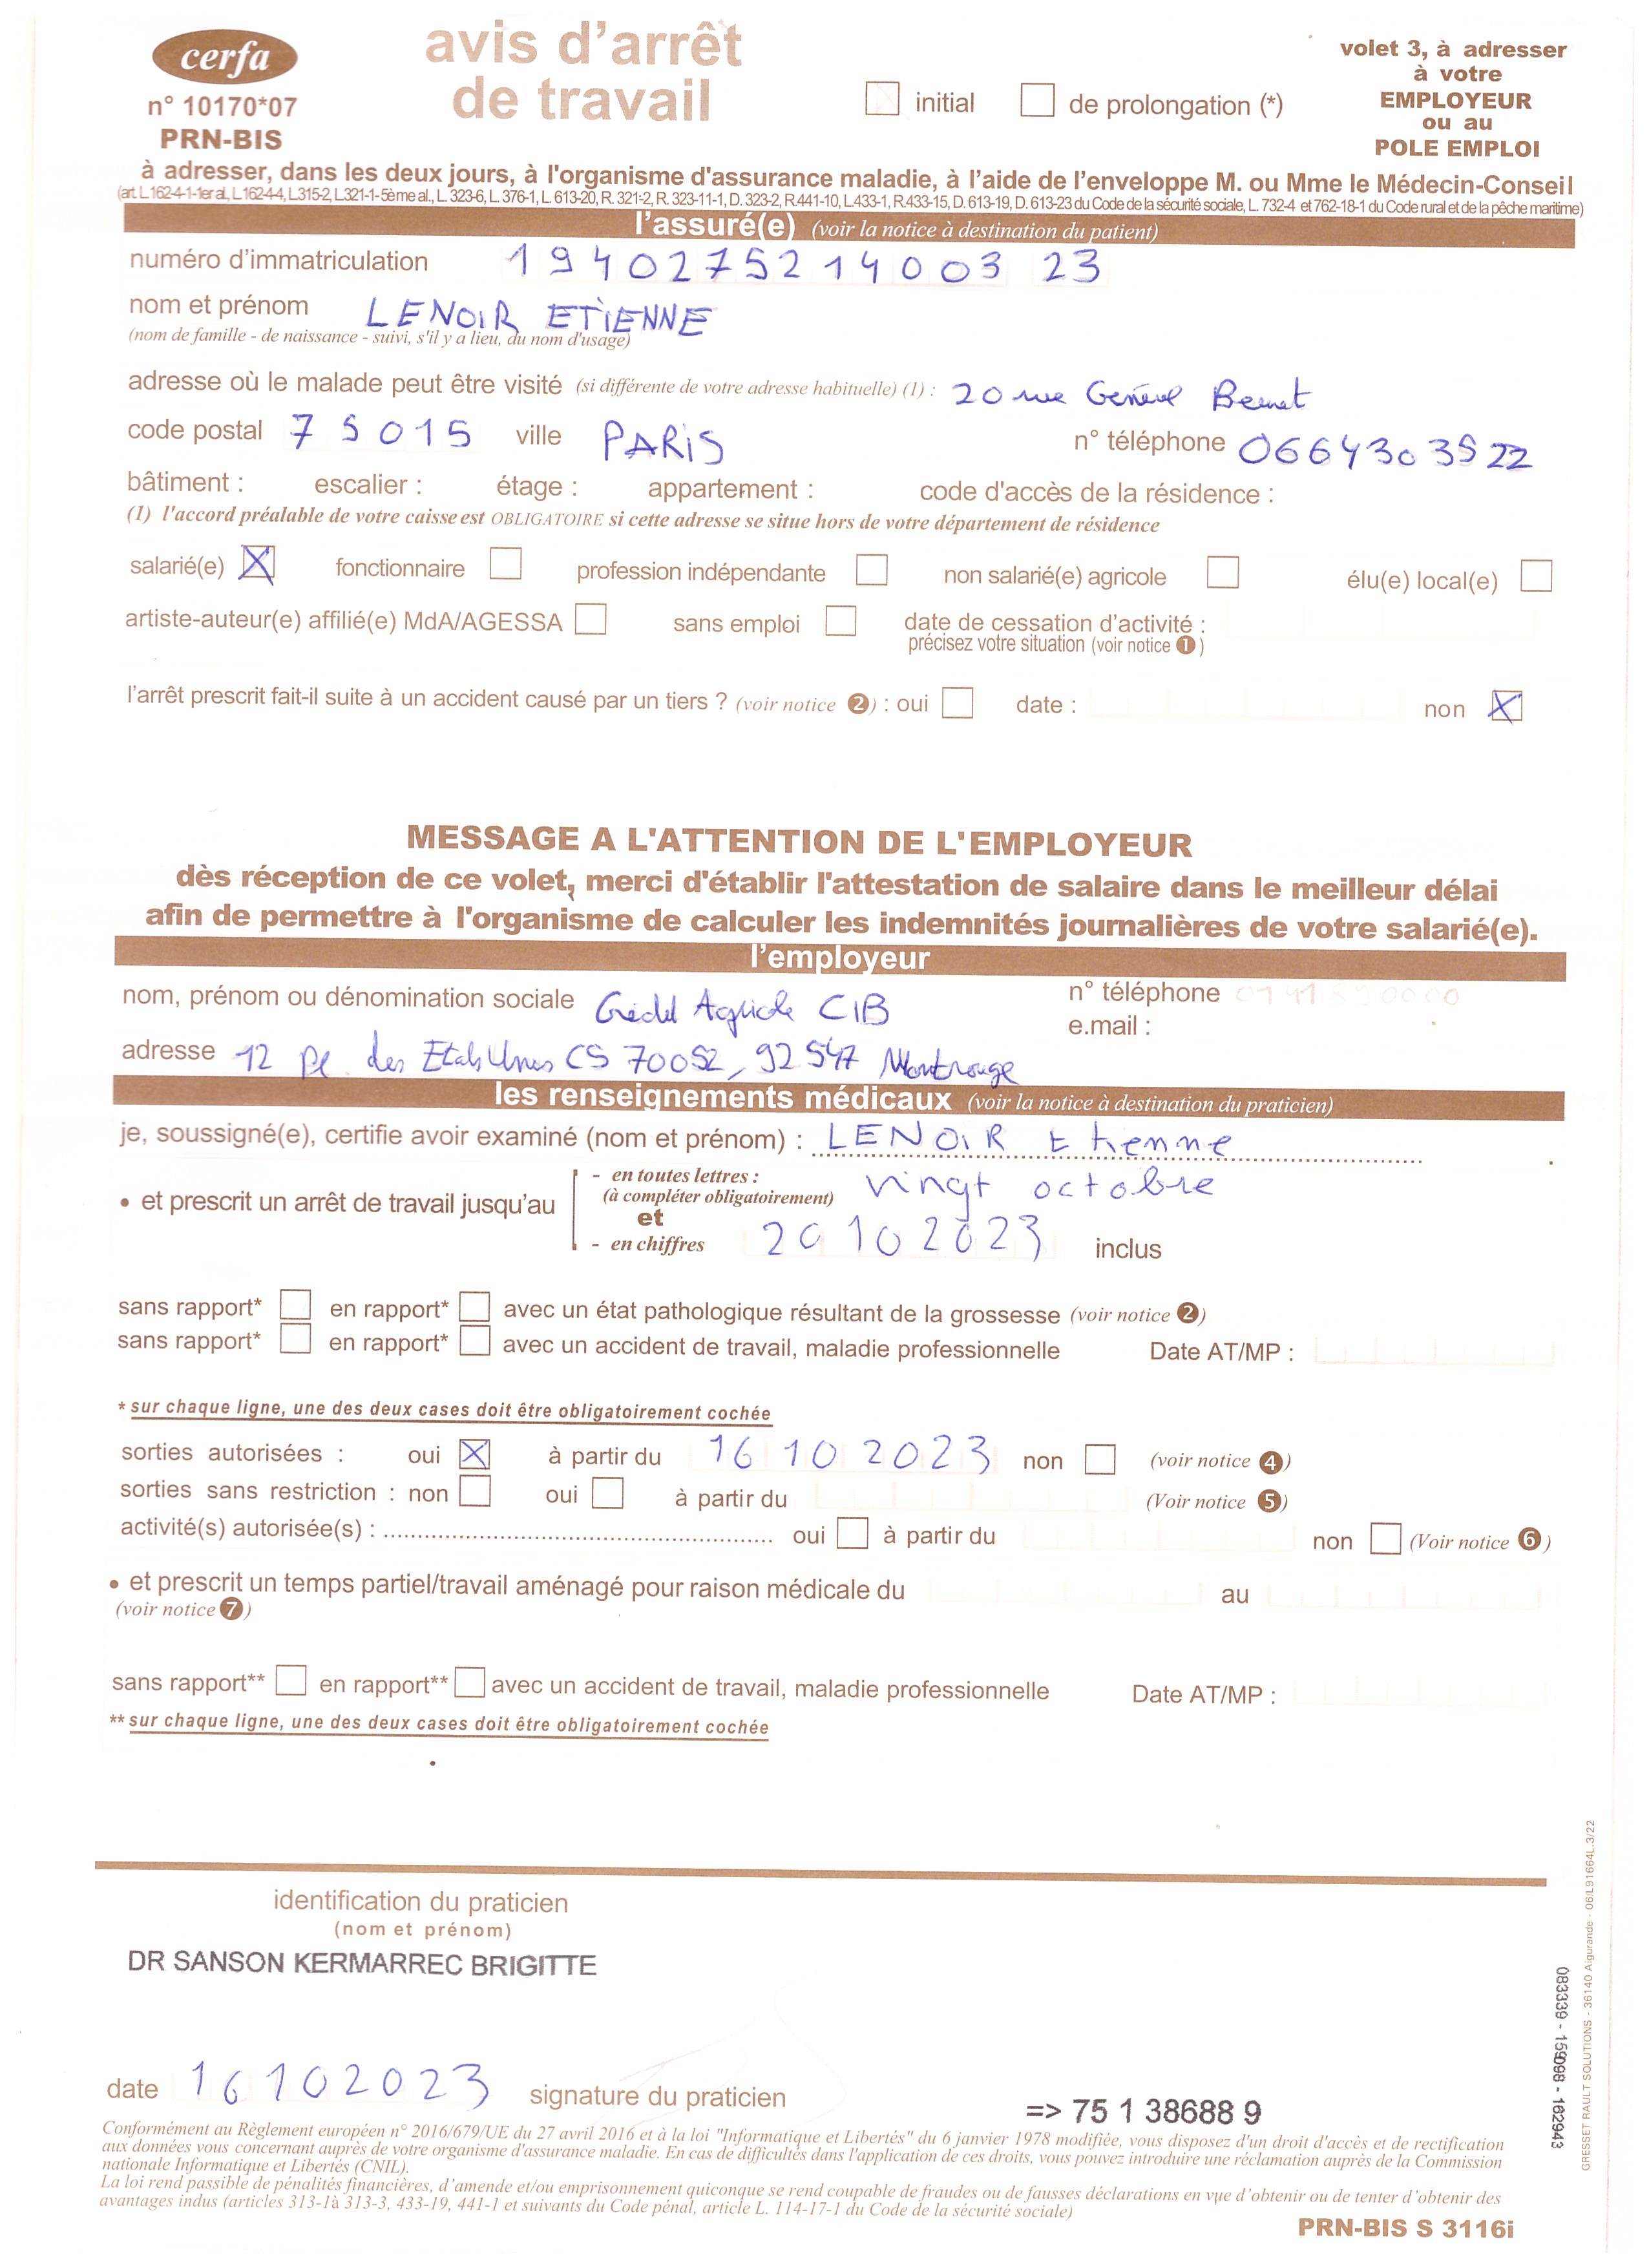 cerfa
n° 10170*07
PRN-BIS
avis d'arrêt
de travail
initial de prolongation (*)
volet 3, à adresser
à votre
EMPLOYEUR
ou au
POLE EMPLOI
à adresser, dans les deux jours, à l'organisme d'assurance maladie, à l'aide de l'enveloppe M. ou Mme le Médecin-Conseil
(art. L.162-4-1-1er al, L.162-4-4, L.315-2, L.321-1-5ème al., L. 323-6, L. 376-1, L. 613-20, R. 321-2, R. 323-11-1, D. 323-2, R.441-10, L.433-1, R.433-15, D. 613-19, D. 613-23 du Code de la sécurité sociale, L. 732-4 et 762-18-1 du Code rural et de la pêche maritime)
l'assuré(e) (voir la notice à destination du patient)
numéro d'immatriculation 1940275214003 23
nom et prénom LENOIR ETIENNE
(nom de famille - de naissance - suivi, s'il y a lieu, du nom d'usage)
adresse où le malade peut être visité (si différente de votre adresse habituelle) (1) : 20 rue Général
code postal 75015 ville PARIS n° téléphone 0664303522
bâtiment : escalier : étage : appartement : code d'accès de la résidence :
(1) l'accord préalable de votre caisse est OBLIGATOIRE si cette adresse se situe hors de votre département de résidence
salarié(e) X fonctionnaire profession indépendante non salarié(e) agricole élu(e) local(e)
artiste-auteur(e) affilié(e) MdA/AGESSA sans emploi date de cessation d'activité :
précisez votre situation (voir notice 1)
l'arrêt prescrit fait-il suite à un accident causé par un tiers ? (voir notice 2) : oui date : non X
MESSAGE A L'ATTENTION DE L'EMPLOYEUR
dès réception de ce volet, merci d'établir l'attestation de salaire dans le meilleur délai
afin de permettre à l'organisme de calculer les indemnités journalières de votre salarié(e).
l'employeur
nom, prénom ou dénomination sociale Crédit Agricole CIB n° téléphone
e.mail :
adresse 12 Pl. des Etats Unis CS 70052, 92547 Montrouge
les renseignements médicaux (voir la notice à destination du praticien)
je, soussigné(e), certifie avoir examiné (nom et prénom) : LENOIR Etienne
- en toutes lettres : vingt octobre
(à compléter obligatoirement)
• et prescrit un arrêt de travail jusqu'au
et
- en chiffres 20102023 inclus
sans rapport* en rapport* avec un état pathologique résultant de la grossesse (voir notice 2)
sans rapport* en rapport* avec un accident de travail, maladie professionnelle Date AT/MP :
* sur chaque ligne, une des deux cases doit être obligatoirement cochée
sorties autorisées : oui X à partir du 16 10 2023 non (voir notice 4)
sorties sans restriction : non oui à partir du (Voir notice 5)
activité(s) autorisée(s) : oui à partir du non (Voir notice 6)
• et prescrit un temps partiel/travail aménagé pour raison médicale du au
(voir notice 7)
sans rapport** en rapport** avec un accident de travail, maladie professionnelle Date AT/MP :
** sur chaque ligne, une des deux cases doit être obligatoirement cochée
identification du praticien
(nom et prénom)
DR SANSON KERMARREC BRIGITTE
date 16102023 signature du praticien
=> 75 1 38688 9
Conformément au Règlement européen n° 2016/679/UE du 27 avril 2016 et à la loi "Informatique et Libertés" du 6 janvier 1978 modifiée, vous disposez d'un droit d'accès et de rectification
aux données vous concernant auprès de votre organisme d'assurance maladie. En cas de difficultés dans l'application de ces droits, vous pouvez introduire une réclamation auprès de la Commission
nationale Informatique et Libertés (CNIL).
La loi rend passible de pénalités financières, d'amende et/ou emprisonnement quiconque se rend coupable de fraudes ou de fausses déclarations en vue d'obtenir ou de tenter d'obtenir des
avantages indus (articles 313-1à 313-3, 433-19, 441-1 et suivants du Code pénal, article L. 114-17-1 du Code de la sécurité sociale)
PRN-BIS S 3116i
083339 - 159098 - 162943
GRESSET RAULT SOLUTIONS - 36140 Aigurande - 06/L91664L.3/22